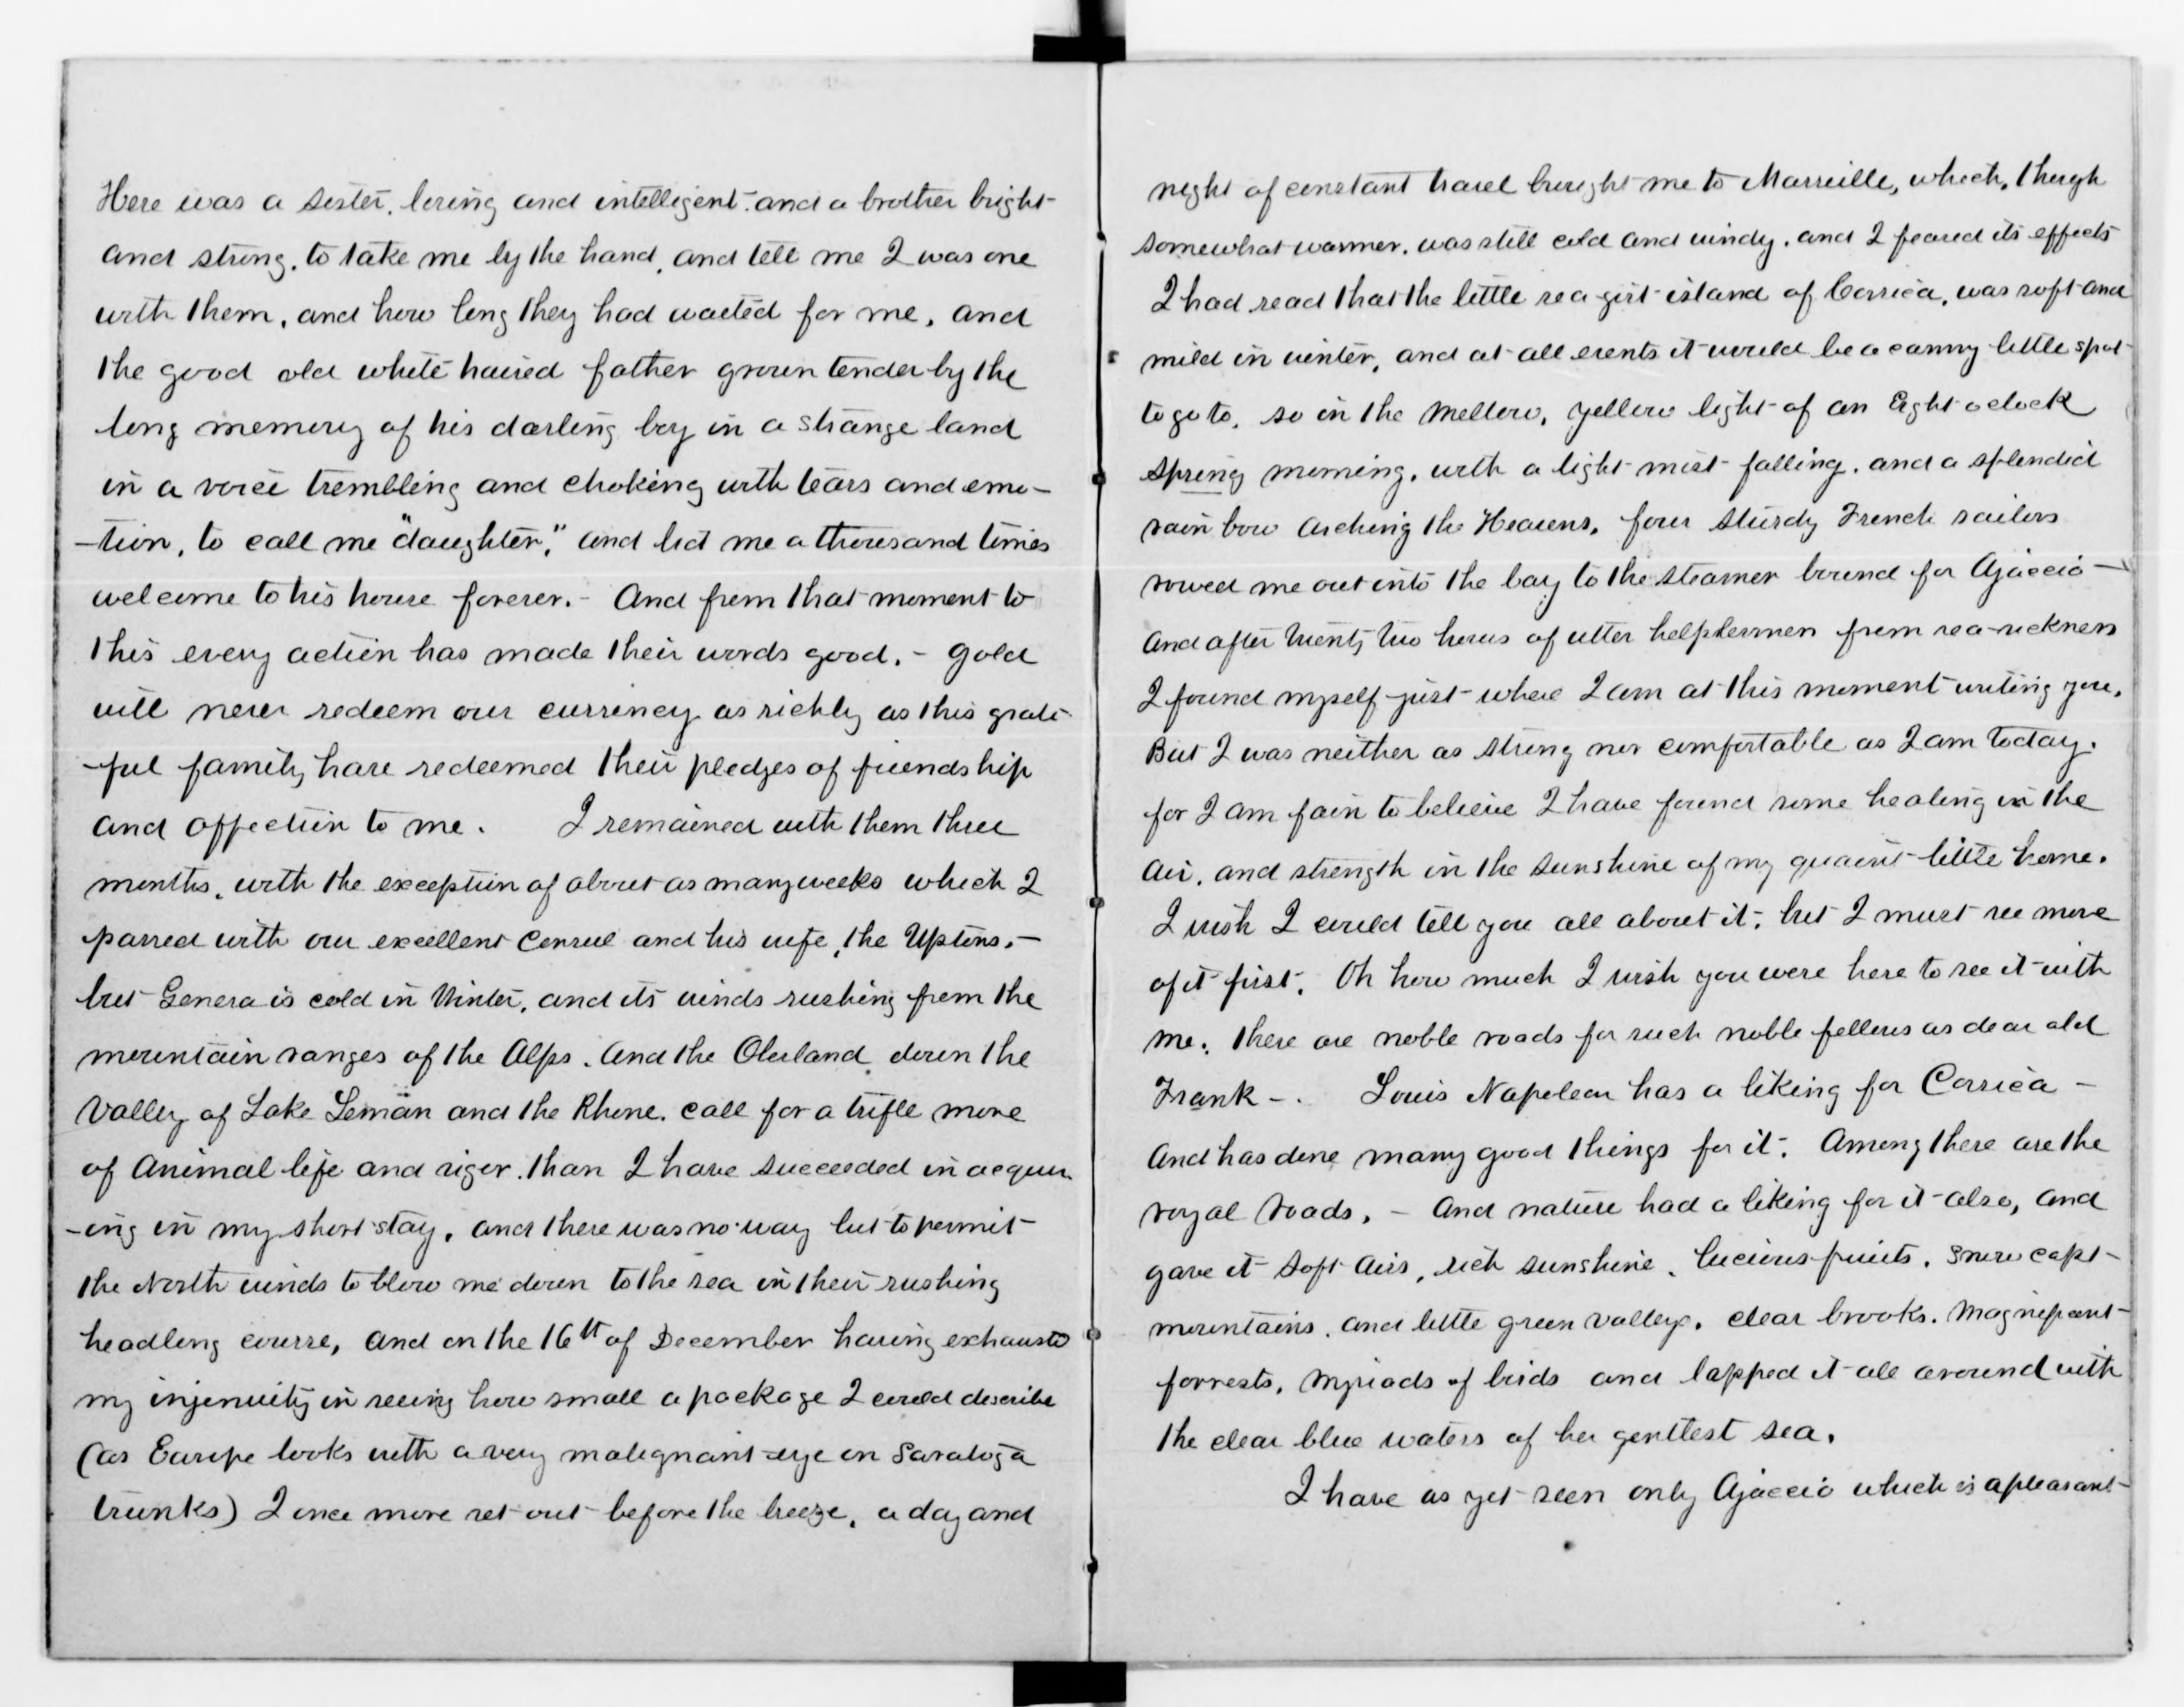 Here was a sister, loving and intelligent- and a brother bright-
and strong, to take me by the hand, and tell me I was one
with them, and how long they had waited for me, and
the good old white haired father grown tender by the
long memory of his darling boy in a strange land
in a voice trembling and choking with tears and emo-
-tion, to call me "daughter," and bid me a thousand times
welcome to his house forever. - And from that moment to
this every action has made their words good. - gold
will never redeem our currency as richly as this grate-
-ful family have redeemed their pledges of friendship
and affection to me. I remained with them three
months, with the exception of about as many weeks which I
passed with our excellent Consul and his wife, the Uptons. -
but Geneva is cold in Winter, and its winds rushing from the
mountain ranges of the Alps. And the Oberland, down the
Valley of Lake Lemän and the Rhone, call for a trifle more
of Animal life and vigor, than I have succeeded in acquir-
-ing in my short stay, and there was no way but to permit
the North winds to blow me down to the sea in their rushing
headlong course, and on the 16th of December having exhausted
my injenuity in seeing how small a package I could describe
(as Europe looks with a very malignant eye on Saratoga
trunks) I once more set out before the breeze, a day and
night of constant travel brought me to Marseille, which, though
somewhat warmer, was still cold and windy, and I feared its effects
I had read that the little sea-girt island of Corsica, was soft and
mild in winter, and at all events it would be a canny little spot
to go to, so in the mellow, yellow light of an Eight oclock
spring morning, with a light mist falling, and a splendid
rain bow arching the Heavens, four sturdy French sailors
rowed me out into the bay to the steamer bound for Ajaccio -
and after twenty two hours of utter helplessness from sea-sickness
I found myself just where I am at this moment writing you.
But I was neither as strong nor comfortable as I am today.
for I am fain to believe I have found some healing in the
air, and strength in the sunshine of my quaint little home.
I wish I could tell you all about it, but I must see more
of it first. Oh how much I wish you were here to see it with
me, there are noble roads for such noble fellows as dear old
Frank -. Louis Napoleon has a liking for Corsica -
and has done many good things for it. Among these are the
royal roads, - And nature had a liking for it also, and
gave it soft airs, rich sunshine, lucious fruits, snow capt
mountains, and little green valleys, clear brooks, magnificent
forrests, myriads of birds and lapped it all around with
the clear blue waters of her gentlest sea.
I have as yet seen only Ajaccio which is a pleasant